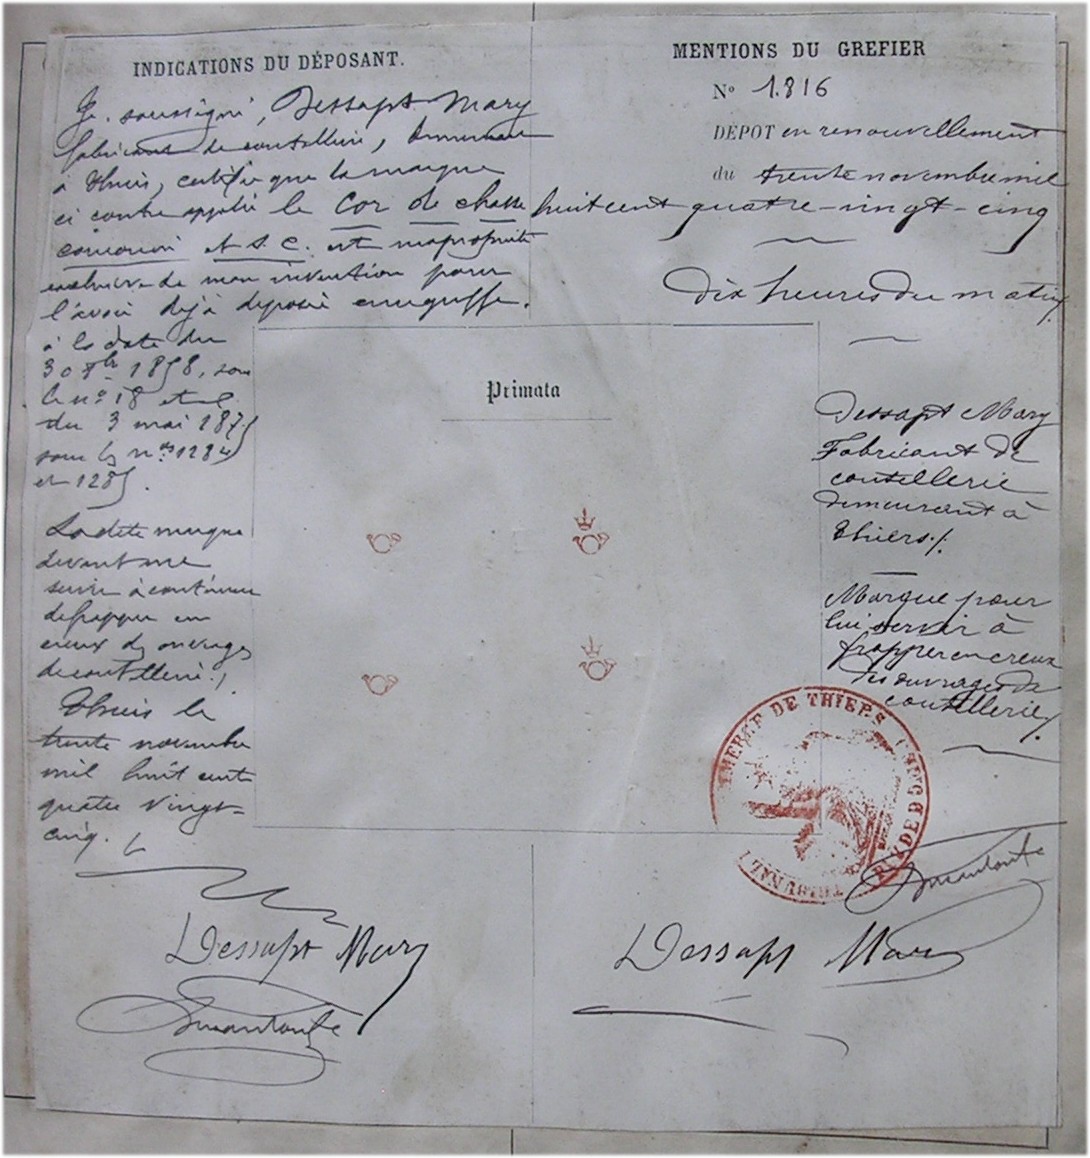 INDICATIONS DU DÉPOSANT.
Je soussigné, Dessapt Mary
fabricant de coutellerie, demeurant
à Thiers, certifie que la marque
ci contre appelée le Cor de chasse
couronné et s. c. est ma propriété
exclusive de mon invention pour
l'avoir déjà déposée au greffe.
à la date du
30 7bre 1858, sous
le n° 18 et
du 3 mai 1875
sous les nos 1284
et 1285.
La dite marque
devant me
servir à continuer
de frapper en
creux des ouvrages
de coutellerie./
Thiers le
trente novembre
mil huit cent
quatre vingt-
cinq.
Dessapt Mary
MENTIONS DU GREFIER
N° 1.816
DÉPOT en renouvellement
du trente novembre mil
huit cent quatre-vingt-cinq
Dix heures du matin
Primata
Dessapt Mary
Fabricant de
coutellerie
demeurant à
Thiers./.
Marque pour
lui servir à
frapper en creux
des ouvrages de
coutellerie/.
DE THIERS
TRIBUNAL
Dessapt Mary